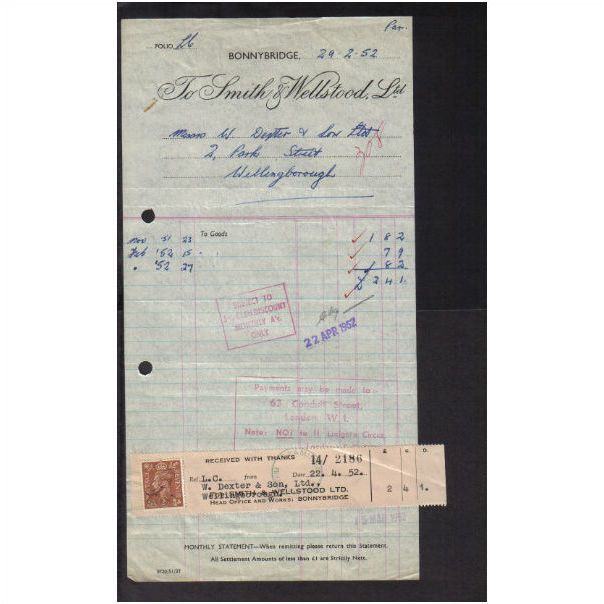 Par.
FOLIO L6
BONNYBRIDGE, 29-2-52
To Smith & Wellstood, Ltd
Messrs W. Dexter & Son Ltd
2, Park Street
Wellingborough
To Goods
Nov 51 23 1 8 2
Feb '52 15 7 9
" '52 27 8 2
£ 2 4 1
SUBJECT TO
DISCOUNT
MONTHLY A/c
ONLY
22 APR 1952
Payments may be made to:-
63, Conduit Street,
London W.1.
Note: NOT to 11 Ludgate Circus,
£ S. D.
RECEIVED WITH THANKS 14/ 2186
Ref. L.C. from Date 22. 4. 52.
W. Dexter & Son, Ltd.,
Wellingborough.
SMITH & WELLSTOOD LTD.
HEAD OFFICE AND WORKS: BONNYBRIDGE
2 4 1.
MAR 1952
MONTHLY STATEMENT—When remitting please return this Statement.
All Settlement Amounts of less than £1 are Strictly Nett.